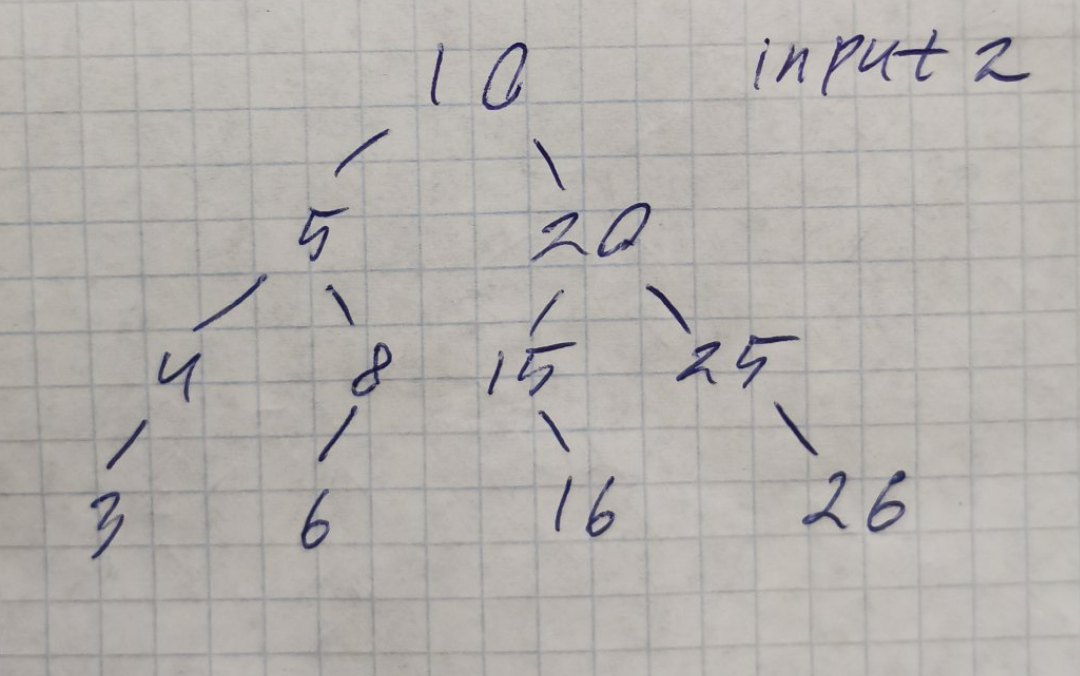 10 input 2
5 20
4 8 15 25
3 6 16 26